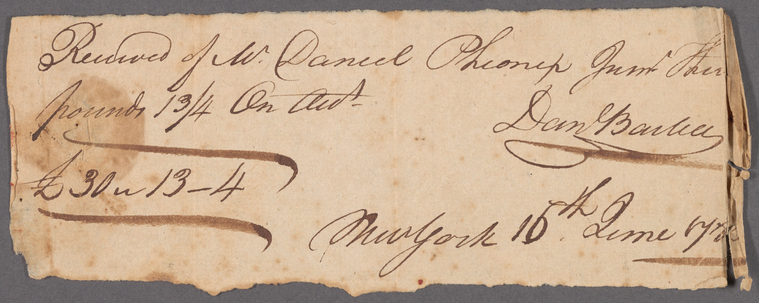 Received of Mr. Daniel Pheonix Junr
pounds 13/4 On Acct.
Danl
£ 30 " 13 – 4
New York 15th June 17